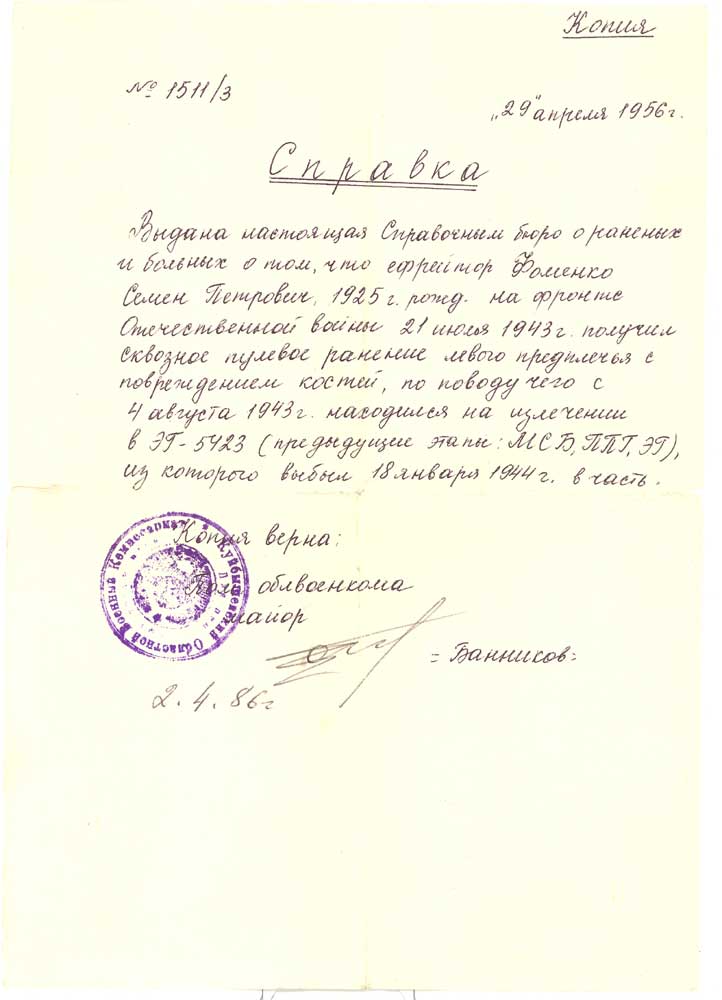 Копия
№ 1511/3
„29" апреля 1956г.
Справка
Выдана настоящая Справочным бюро о раненых
и больных о том, что ефрейтор Фоменко
Семен Петрович, 1925 г. рожд. на фронте
Отечественной войны 21 июля 1943г. получил
сквозное пулевое ранение левого предплечья с
повреждением костей, по поводу чего с
4 августа 1943г. находился на излечении
в ЭГ-5423 (предыдущие этапы: МСБ, ППГ, ЭГ),
из которого выбыл 18 января 1944г. в часть.
Копия верна:
Пом. облвоенкома
майор
= Банников =
2.4.86г
Куйбышевский Областной Военный Комиссариат